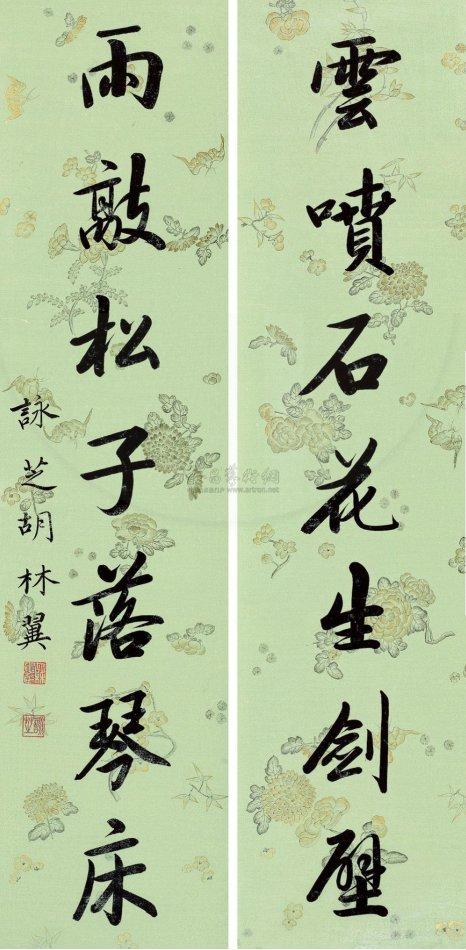 雲噴石花生劍壁
雨敲松子落琴床
詠芝胡林翼
www.artron.net